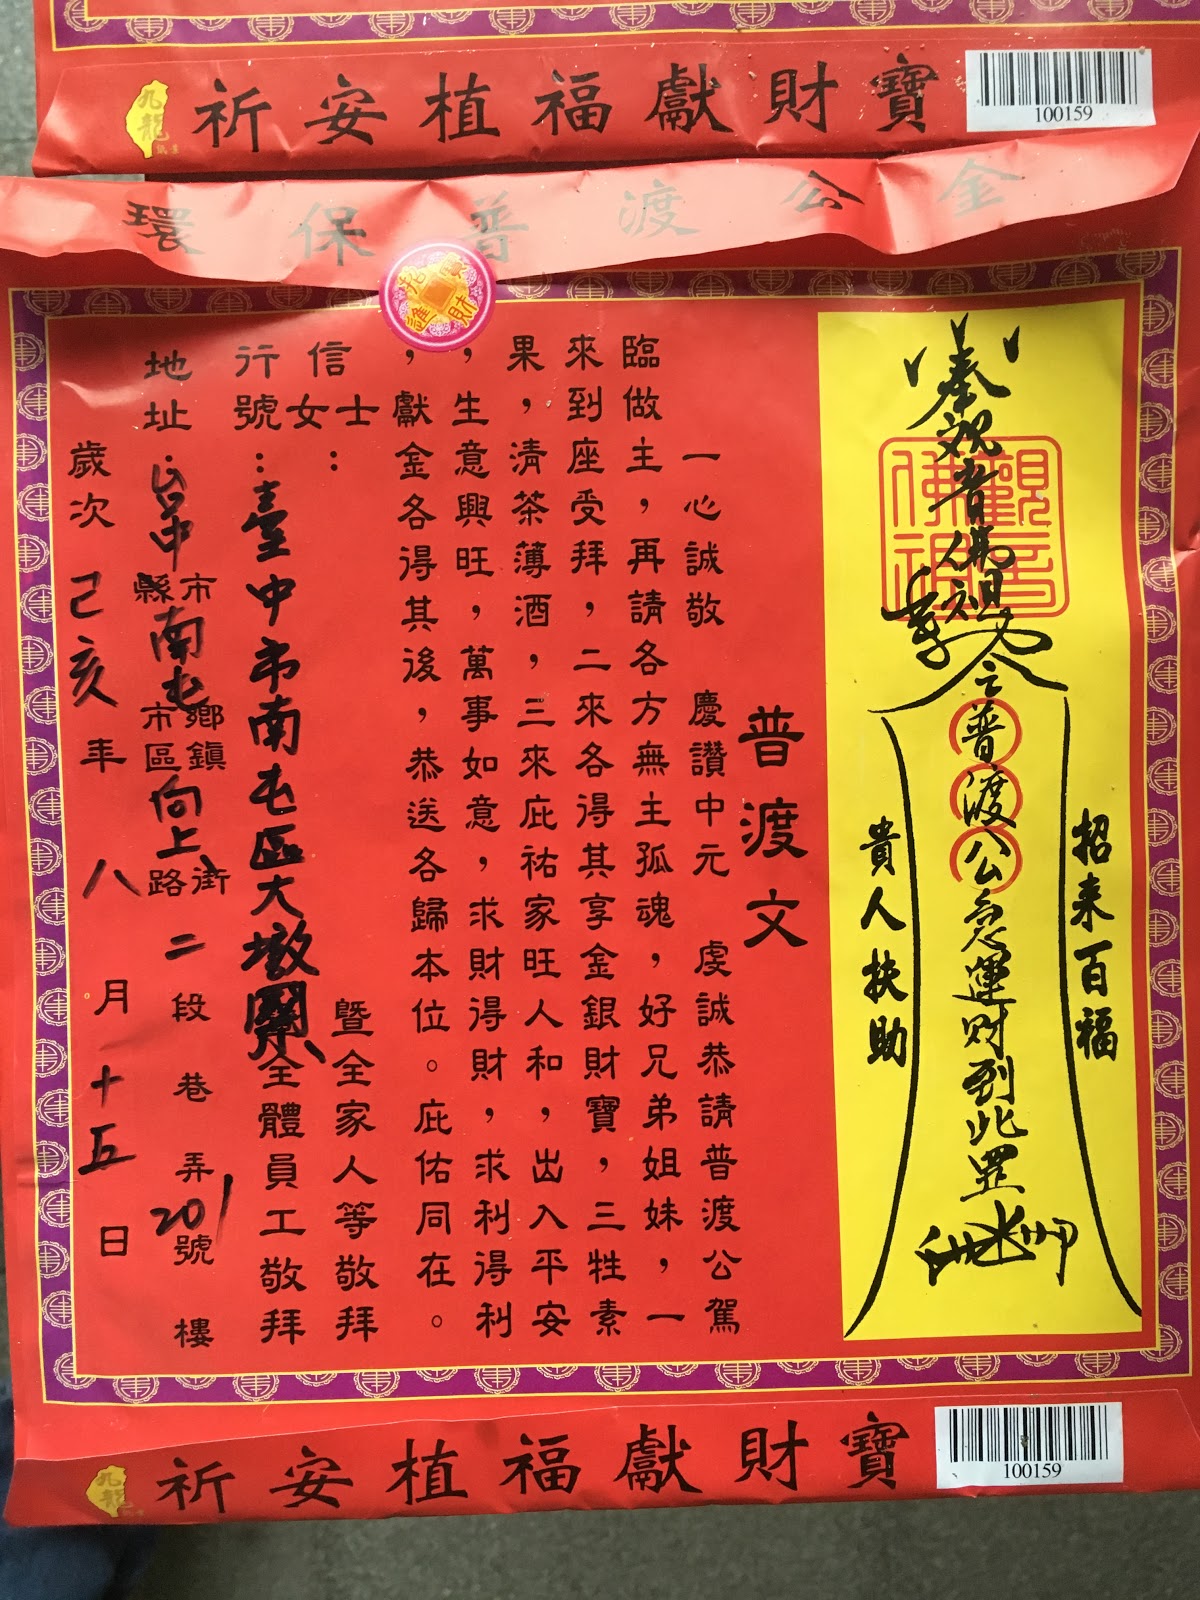 九龍
祈安植福獻財寶
100159
環保普渡公金
招財進寶
奉觀音佛祖令普渡公急運財到此罡
觀音佛祖
招來百福
貴人扶助
普渡文
一心誠敬 慶讚中元 虔誠恭請普渡公駕
臨做主，再請各方無主孤魂，好兄弟姐妹，一
來到座受拜，二來各得其享金銀財寶，三牲素
果，清茶薄酒，三來庇祐家旺人和，出入平安
，生意興旺，萬事如意，求財得財，求利得利
，獻金各得其後，恭送各歸本位。庇佑同在。
信士女： 暨全家人等敬拜
行號：臺中市南屯區大墩 全體員工敬拜
地址：台中縣市南屯鄉鎮市區向上路街二段 巷 弄201號 樓
歲次己亥年八月十五日
九龍
祈安植福獻財寶
100159